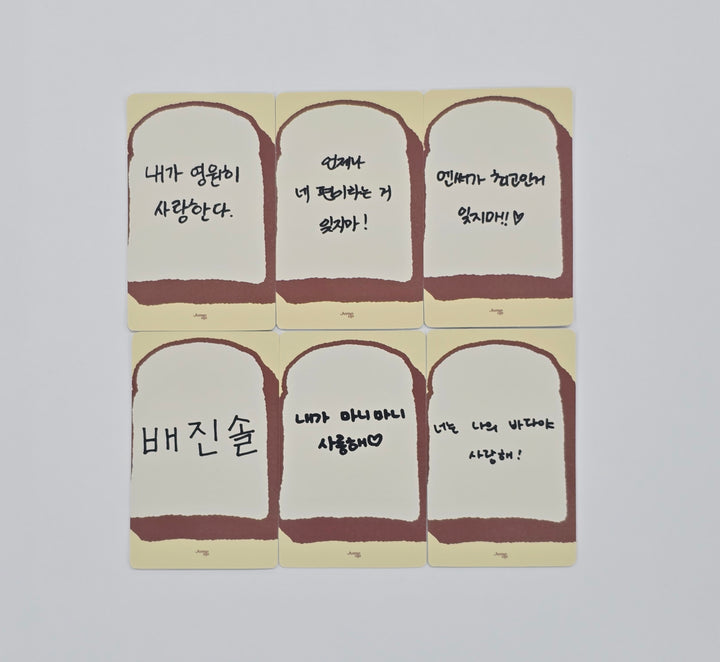 내가 영원히
사랑한다.
언제나
네 편이라는 거
잊지마!
엔써가 최고인거
잊지마!!♡
배진솔
내가 마니마니
사룽해♡
너는 나의 바다야
사랑해!